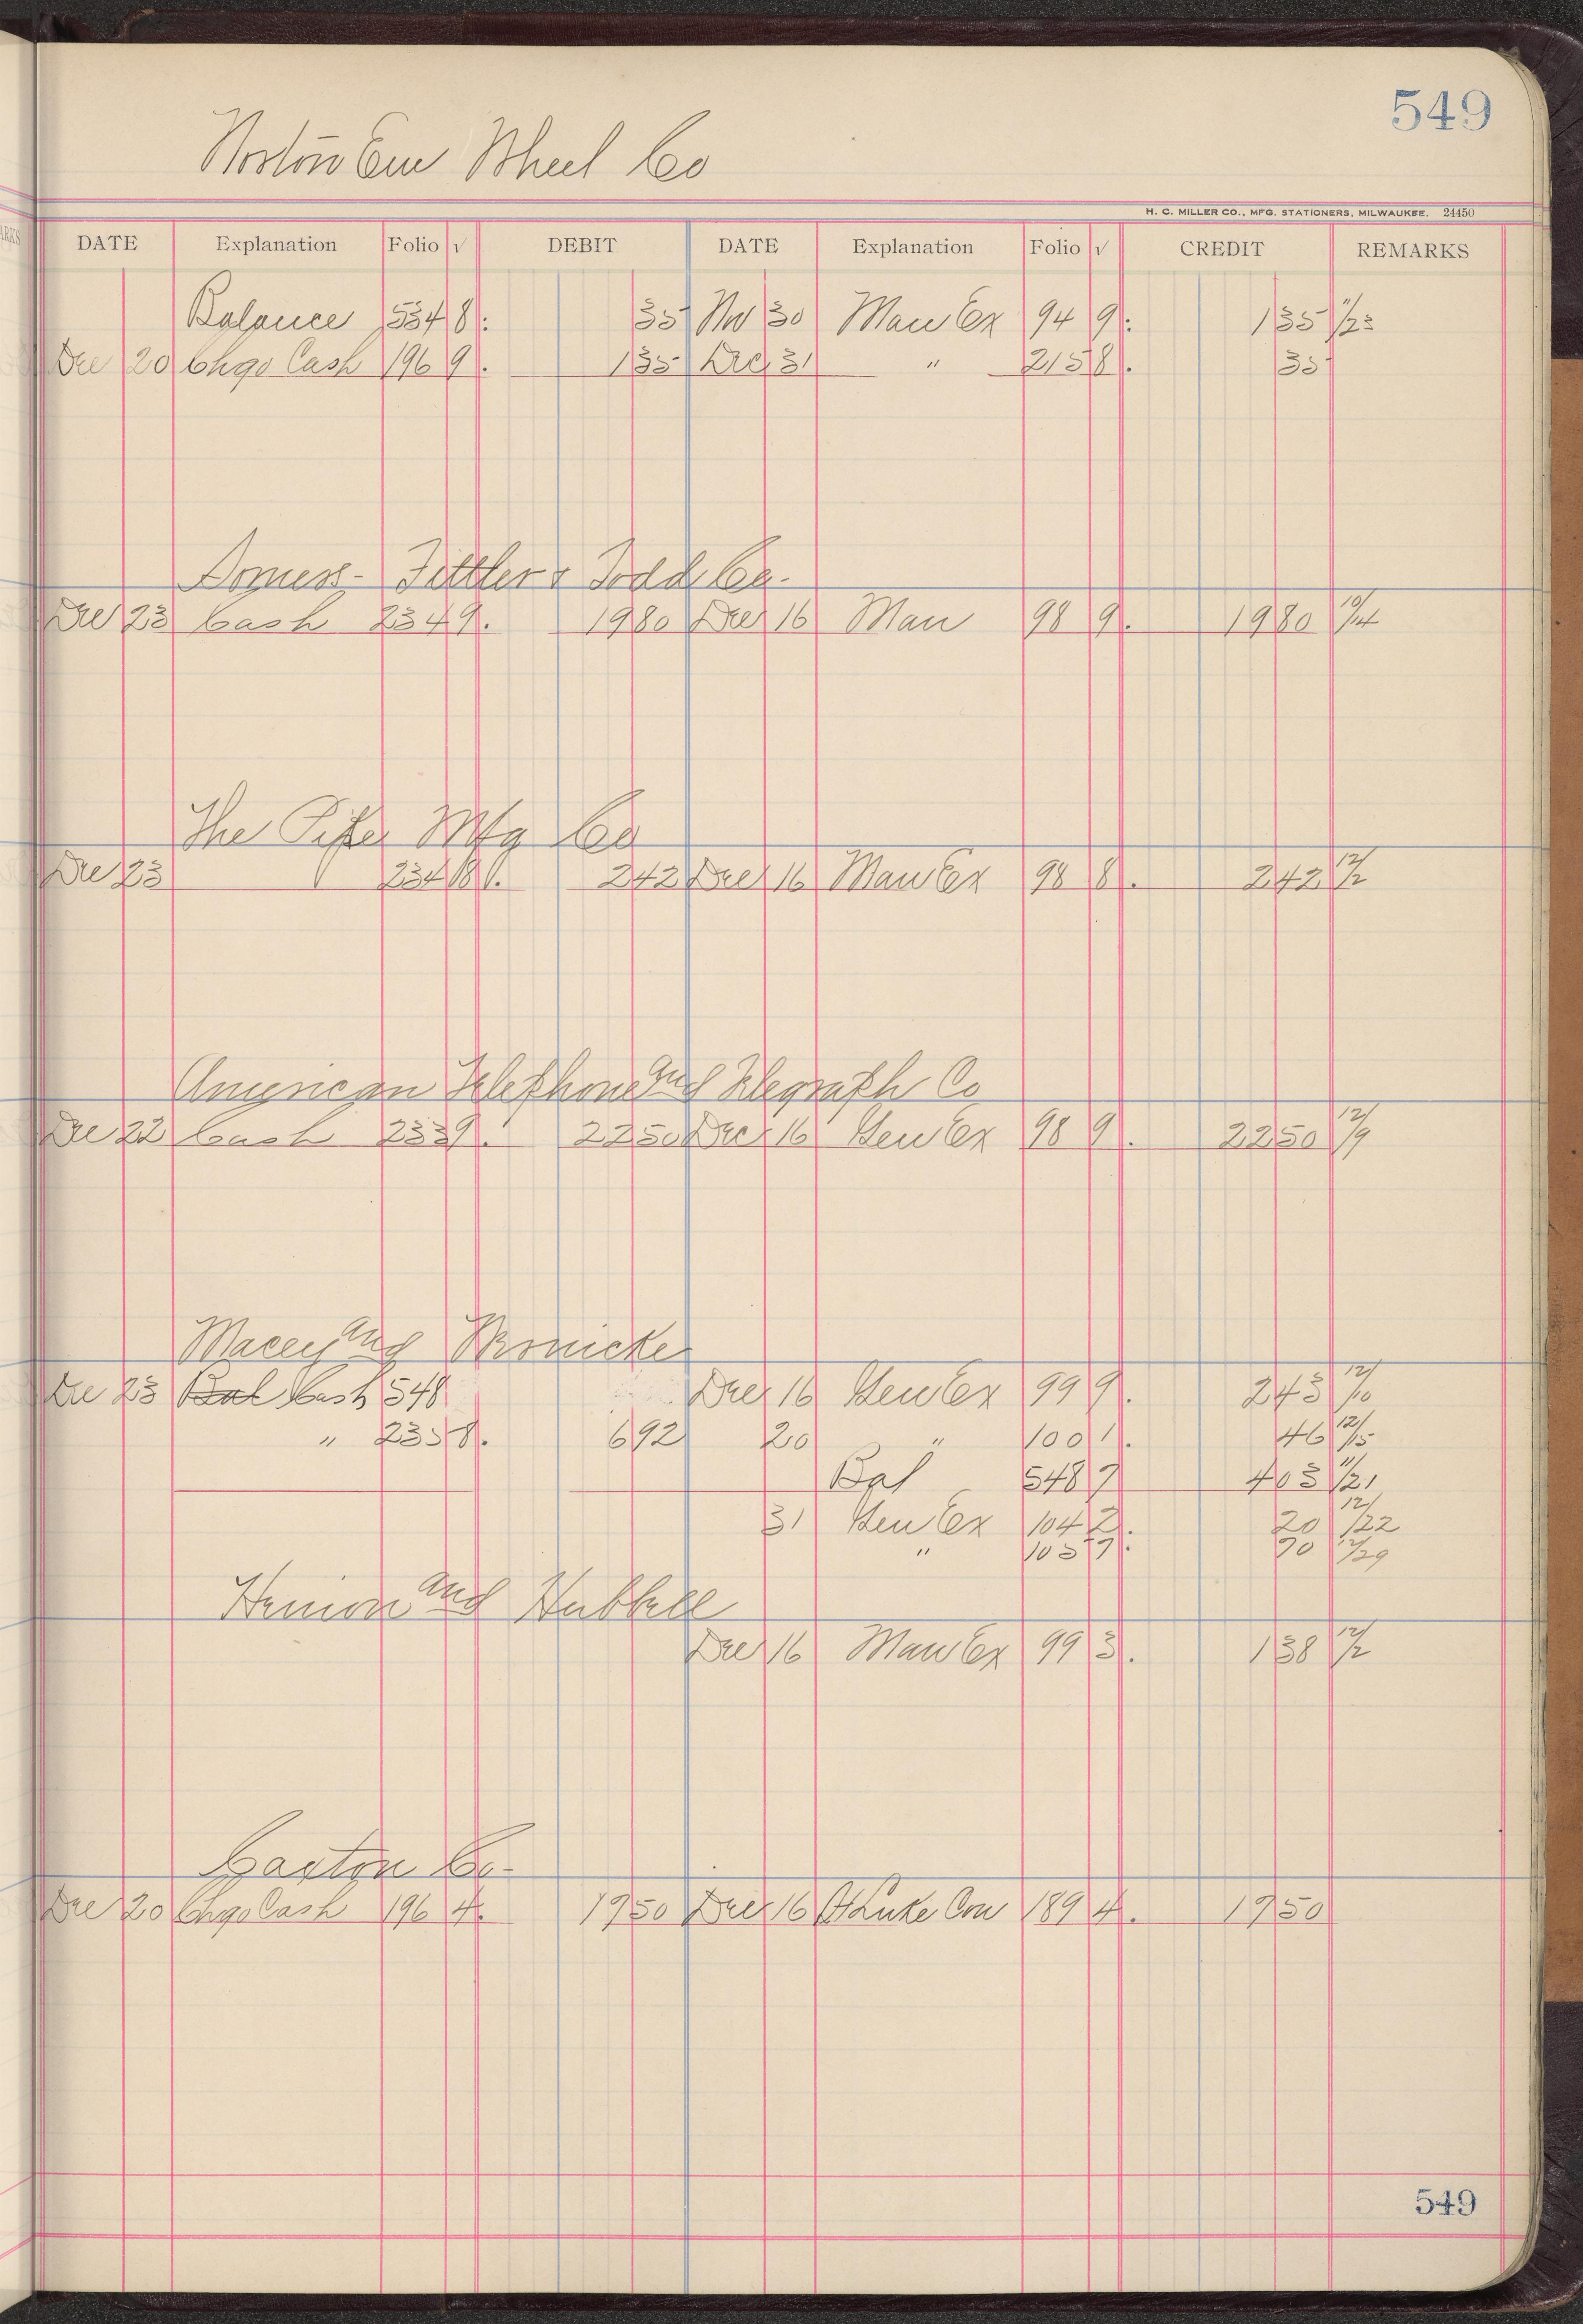 549
Norton Em Wheel Co
H. C. MILLER CO., MFG. STATIONERS, MILWAUKEE. 24450
DATE Explanation Folio √ DEBIT DATE Explanation Folio √ CREDIT REMARKS
Balance 534 8. 35 Nov 30 Man Ex 94 9. 135 11/23
Dec 20 Chgo Cash 196 9. 135 Dec 31 " 215 8. 35
Fittler & Todd Co.
Dec 23 Cash 234 9. 1980 Dec 16 Man 98 9. 1980
The Mfg Co
Dec 23 234 242 Dec 16 Man Ex 98 8. 242 12/2
American Telephone and Telegraph Co
Dec 22 Cash 233 9. 2250 Dec 16 Gen Ex 98 9. 2250 12/9
Macey and Wernicke
Dec 23 Bal Cash 548 Dec 16 Gen Ex 99 9. 243 12/10
" 235 8. 692 20 " 100 1. 46 12/15
Bal 548 7 403 11/21
31 Gen Ex 104 2. 20 12/22
" 105 7. 90 12/29
Henion and Hubbell
Dec 16 Man Ex 99 3. 138 12/2
Caxton Co.
Dec 20 Chgo Cash 196 4. 1750 Dec 16 St Luke Con 189 4. 1750
549